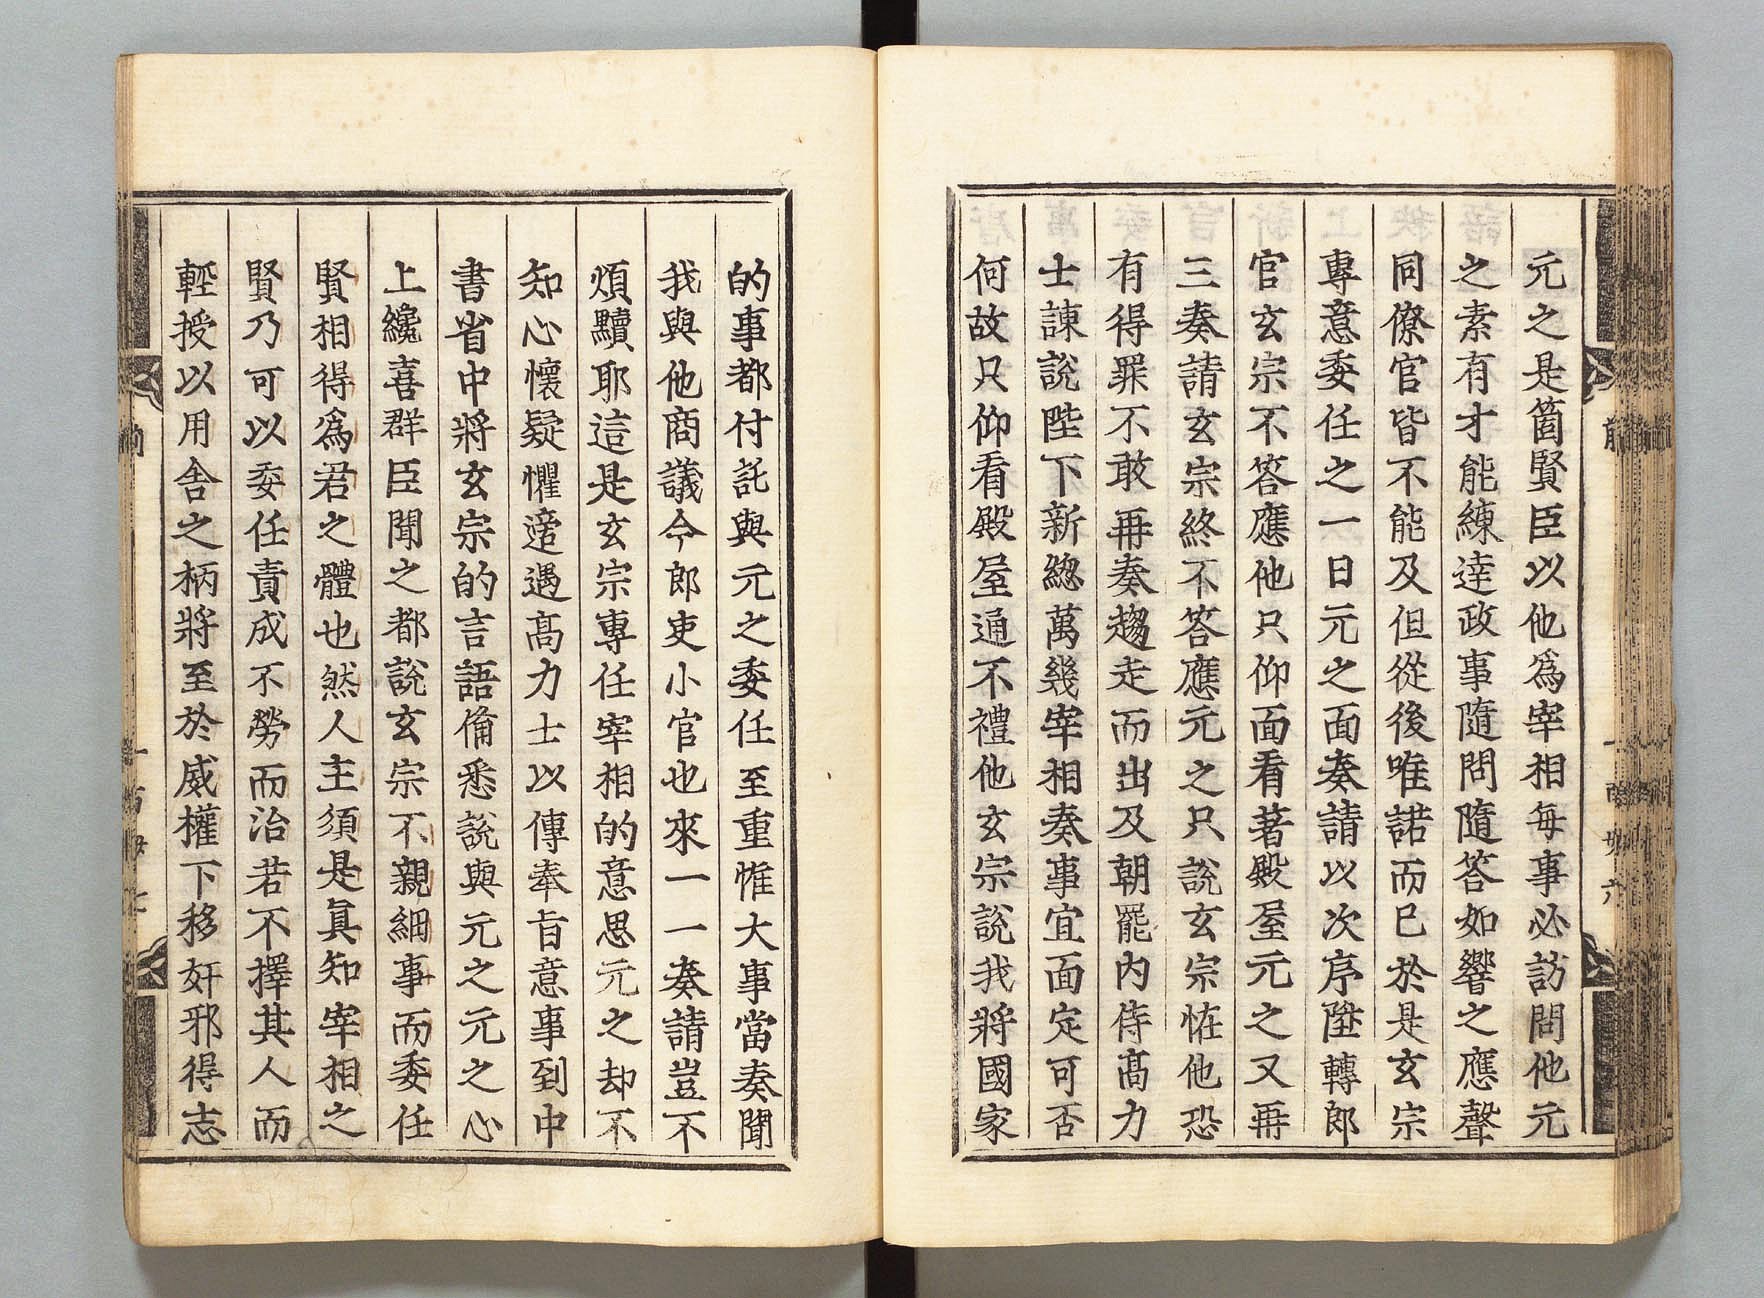 元之是箇賢臣以他爲宰相每事必訪問他元
之素有才能練達政事隨問隨答如響之應聲
同僚官皆不能及但從後唯諾而已於是玄宗
專意委任之一日元之面奏請以次序陞轉郎
官玄宗不答應他只仰面看著殿屋元之又再
三奏請玄宗終不答應元之只說玄宗恠他恐
有得罪不敢再奏趨走而出及朝罷內侍高力
士諫說陛下新緫萬幾宰相奏事宜面定可否
何故只仰看殿屋通不禮他玄宗說我將國家
的事都付託與元之委任至重惟大事當奏聞
我與他商議今郎吏小官也來一一奏請豈不
煩黷耶這是玄宗專任宰相的意思元之却不
知心懷疑懼適遇高力士以傳奉旨意事到中
書省中將玄宗的言語俻悉說與元之元之心
上纔喜群臣聞之都說玄宗不親細事而委任
賢相得爲君之體也然人主須是真知宰相之
賢乃可以委任責成不勞而治若不擇其人而
輕授以用舍之柄將至於威權下移奸邪得志